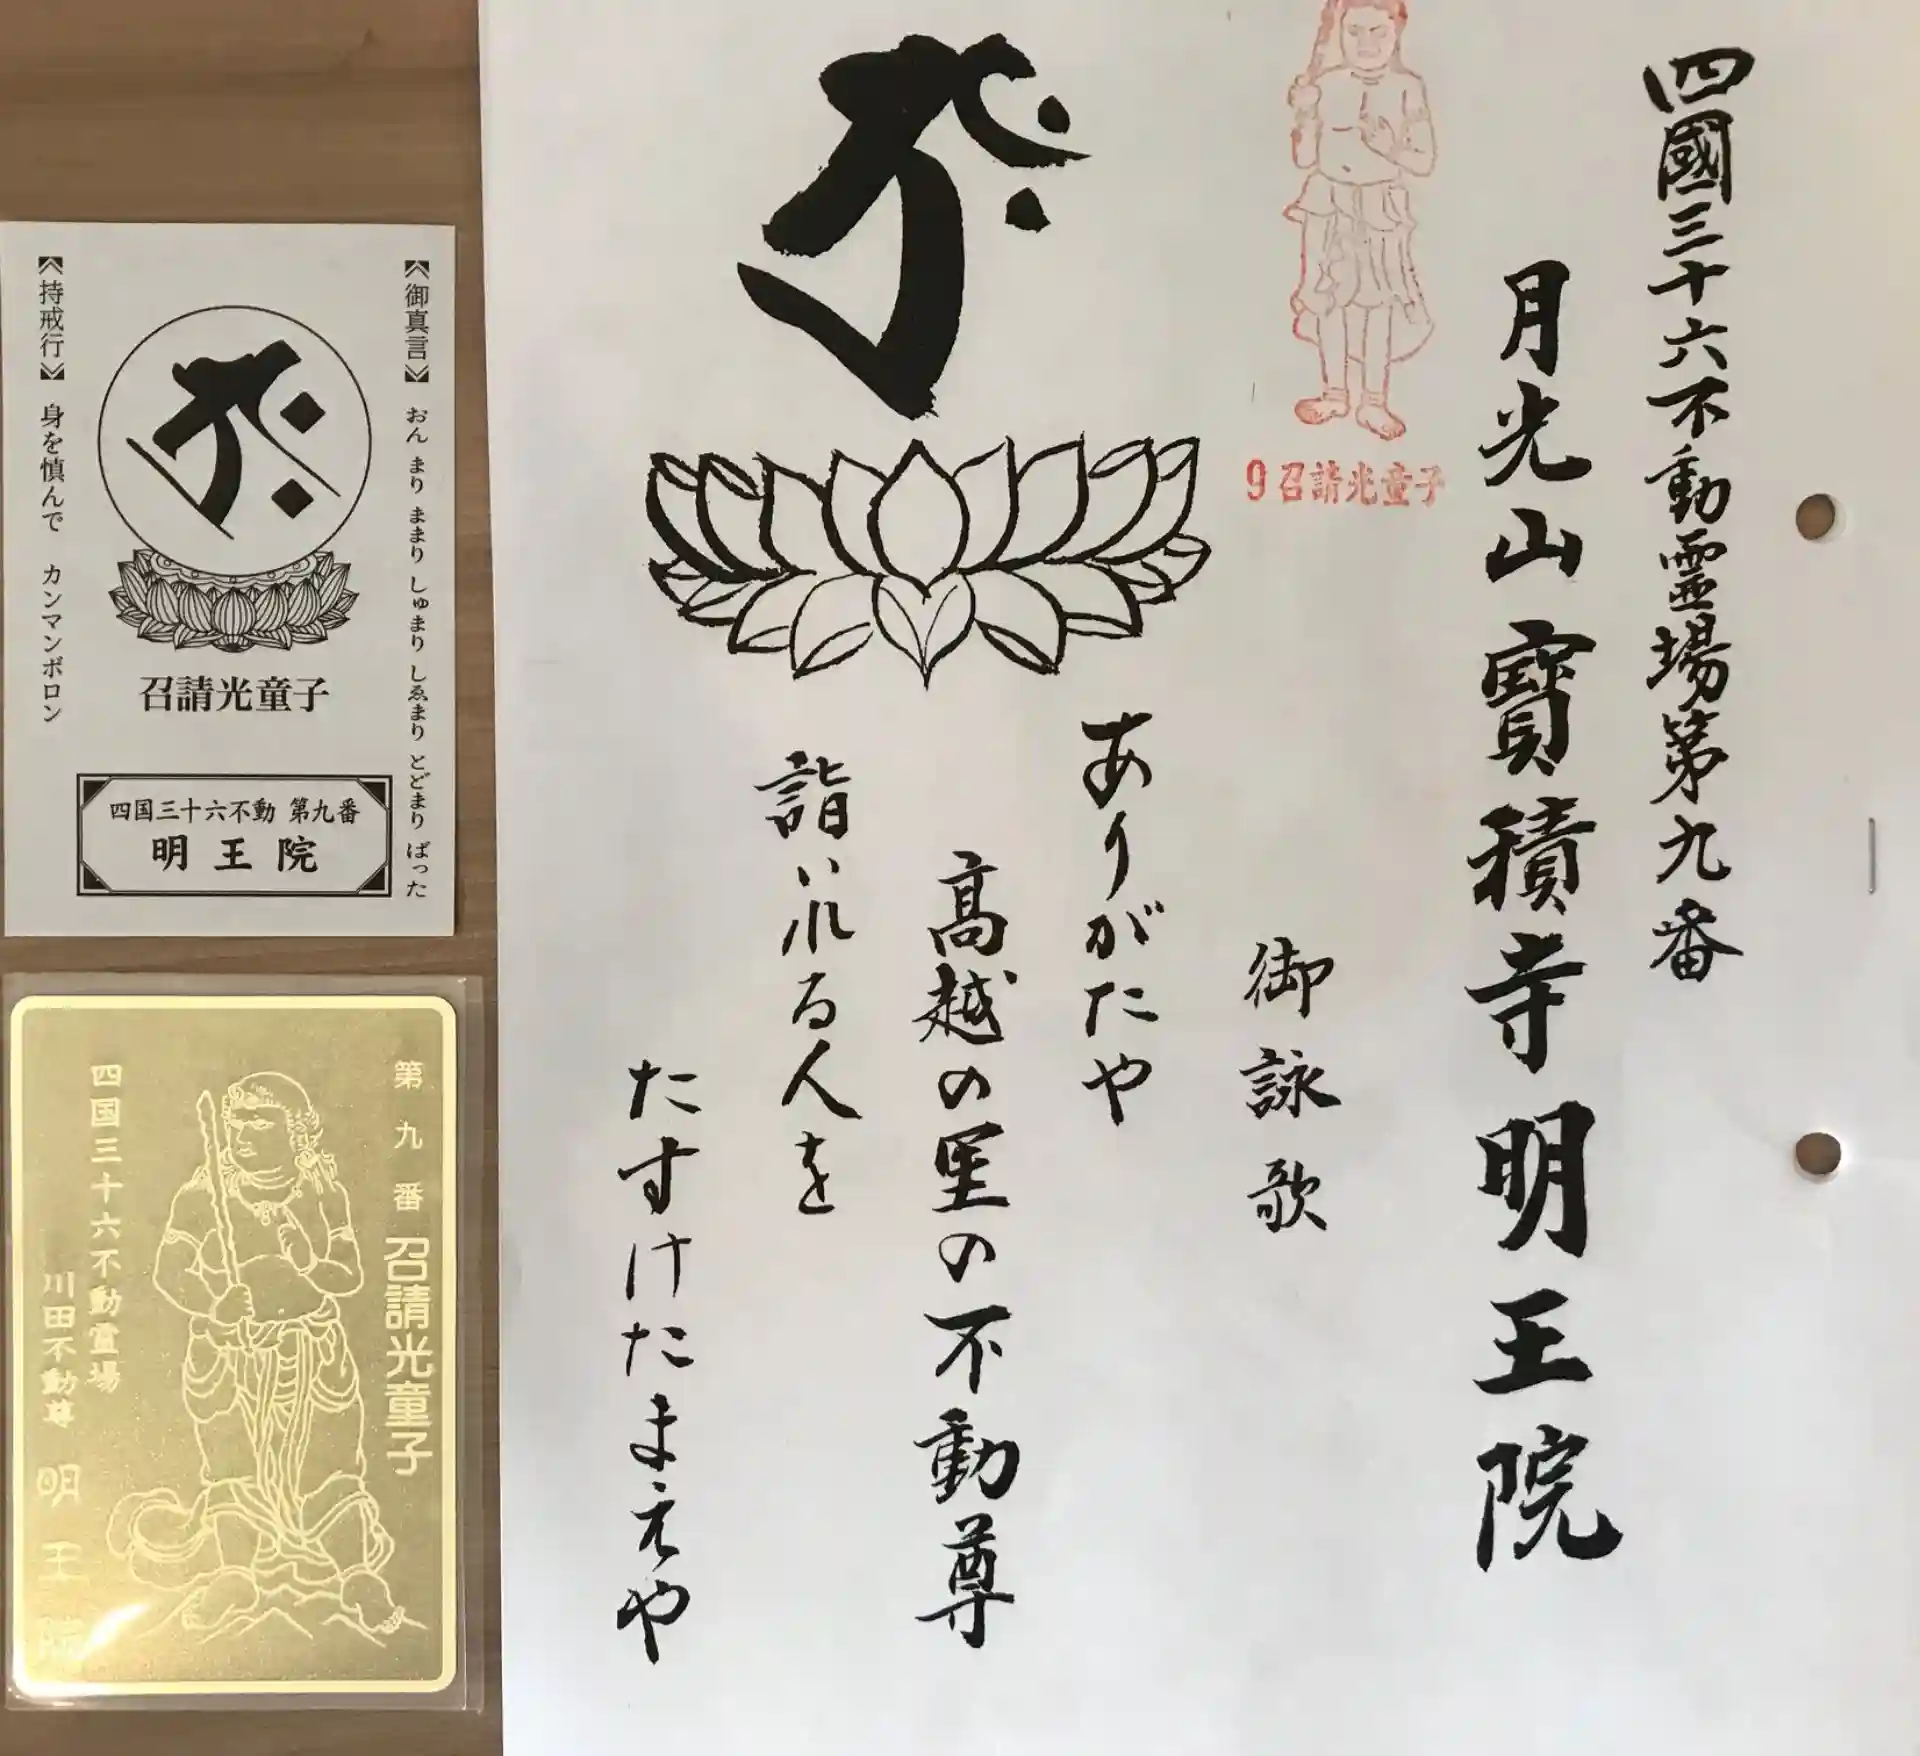 四國三十六不動霊場第九番
月光山寳積寺明王院
9召請光童子
御詠歌
ありがたや
高越の里の不動尊
詣いれる人を
たすけたまえや
《御真言》 おん まり ままり しゅまり しゑまり とどまり ばった
《持戒行》 身を慎んで カンマンボロン
召請光童子
四国三十六不動 第九番
明王院
第九番 召請光童子
四国三十六不動霊場
川田不動尊 明王院